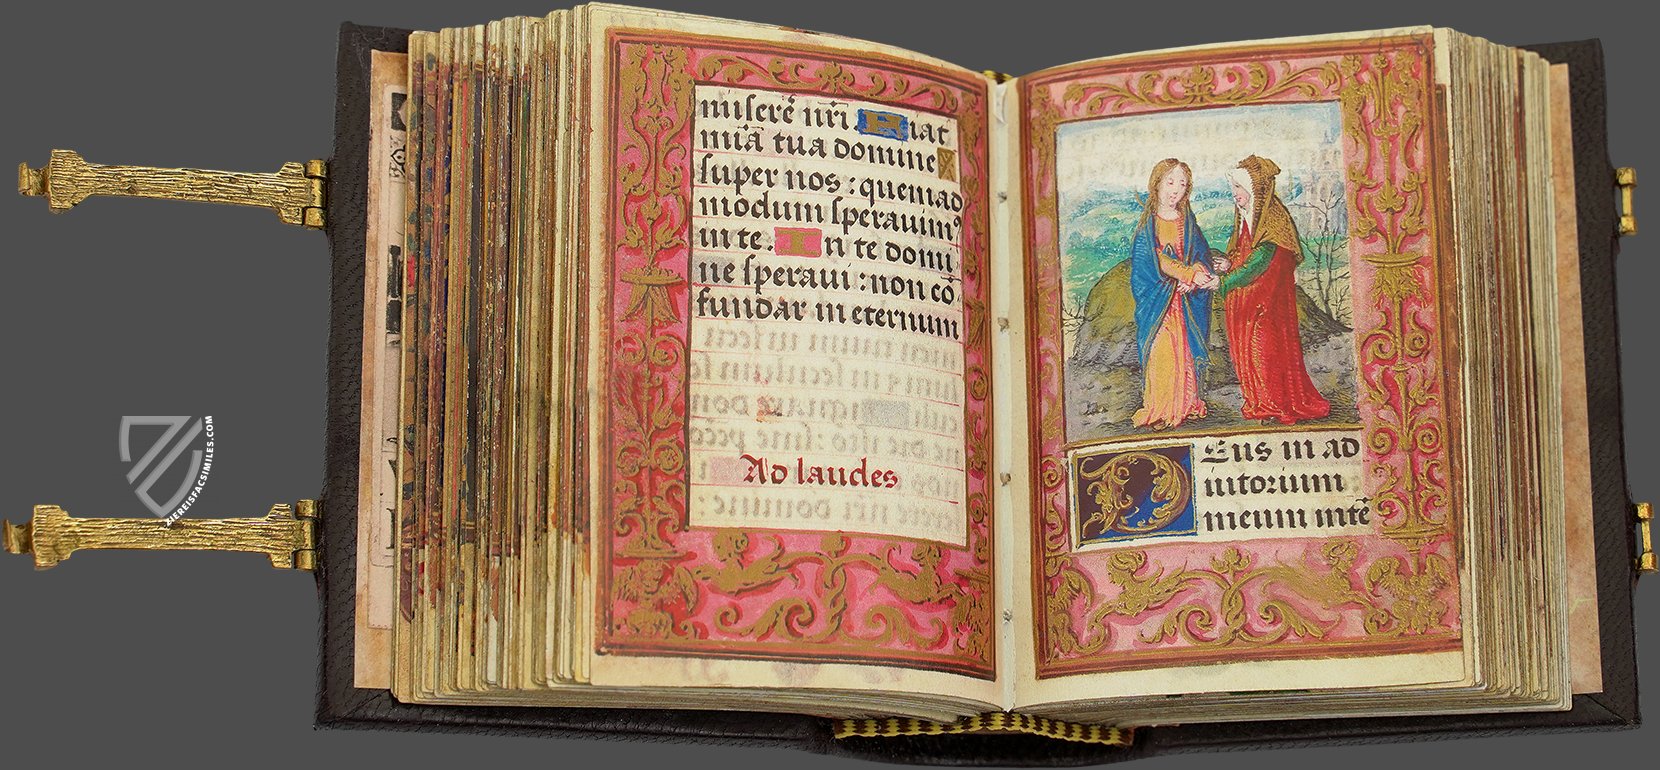 miserē nr̄i. Fiat
mīa tua domine
super nos : quemad
modum speravimꝰ
in te. In te domi
ne speravi : non cō
fundar in eternum
Ad laudes
Deus in ad
iutorium
meum intē
ZIEREISFACSIMILES.COM